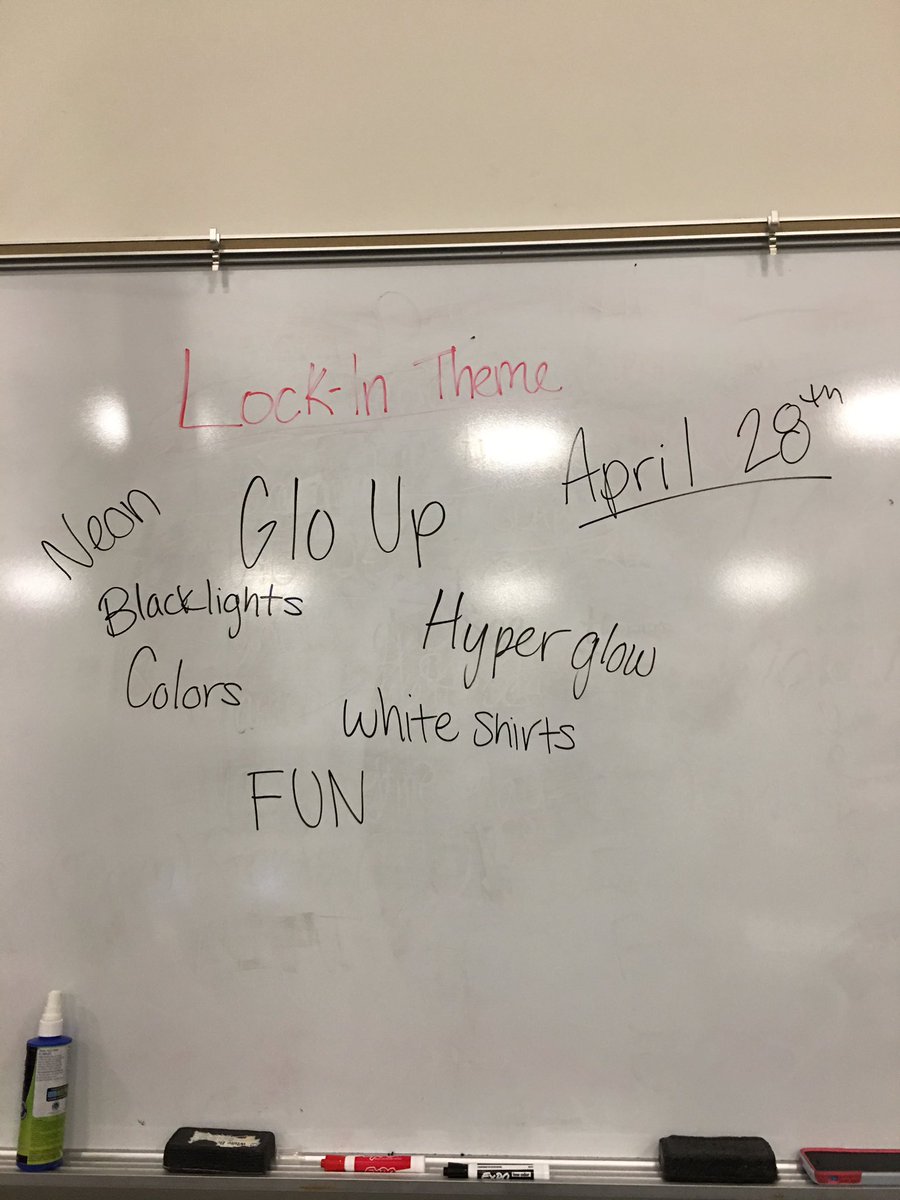 Lock-In Theme
April 28th
Neon
Glo Up
Blacklights
Hyper glow
Colors
White Shirts
FUN
EXPO
EXPO